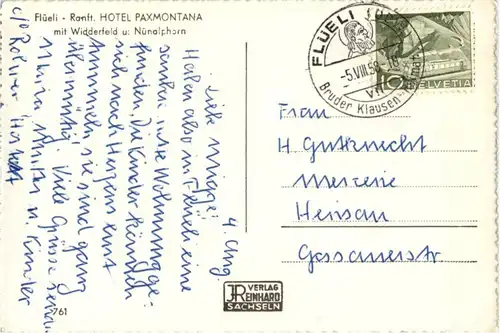 Flüeli - Ranft. HOTEL PAXMONTANA
mit Widderfeld u. Nünalphorn
FLÜELI
-5.VIII.58-18
Bruder Klausen-Heimat
10
HELVETIA
4. Aug.
Liebe
Haben also in Flüeli eine
Wohnung ge-
funden. Die Kinder können
sich nach Herzens Lust
sie sind ganz
Viele Grüsse
u. Kinder
c/o
Frau
H. Gutknecht
Mercerie
Herisau
Gossauerstr
VERLAG
REINHARD
SACHSELN
761